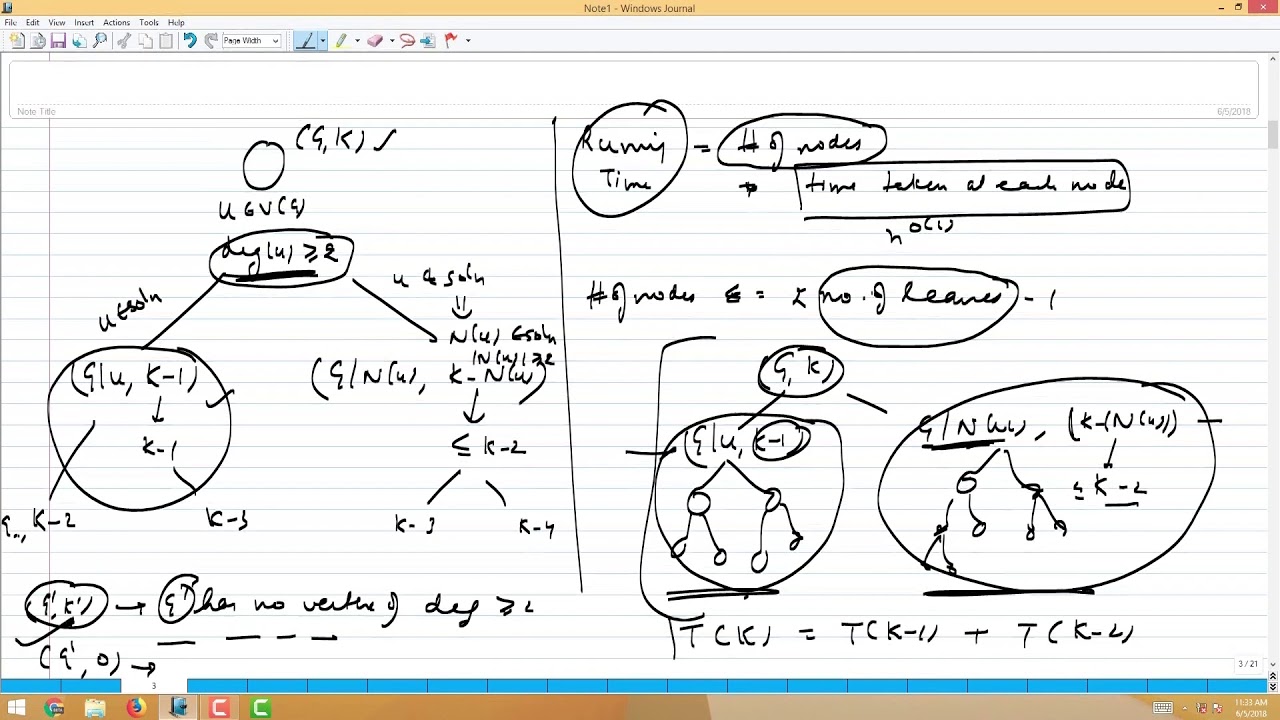 Note1 - Windows Journal
File Edit View Insert Actions Tools Help
Page Width
Note Title
6/5/2018
(G, K) ✓
u ∈ V(G)
deg(u) ≥ 2
u ∈ soln
u ∉ soln
⇓
N(u) ∈ soln
|N(u)| ≥ 2
(G|u, K-1)
(G|N(u), K-N(u))
↓
↓
K-1
≤ K-2
K-2
K-3
K-3
K-4
(G', K') → G' has no vertex of deg ≥ 2
(G', 0) →
Time = # of nodes
* time taken at each node
n^O(1)
# of nodes ≤ = 2 no. of leaves - 1
G, K)
(G|u, K-1)
G|N(u), (K-|N(u)|)
≤ K-2
T(K) = T(K-1) + T(K-2)
3 / 21
3
11:33 AM
6/5/2018